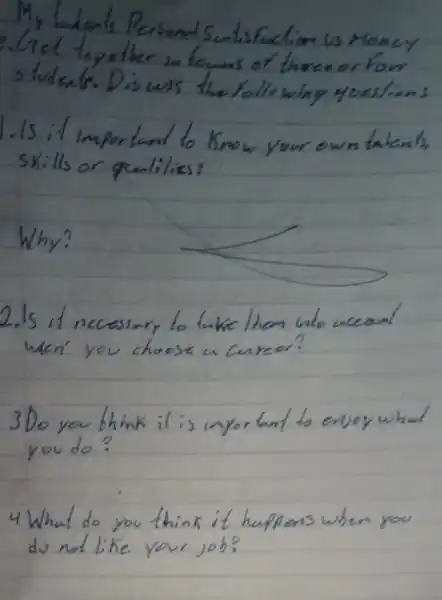 My talents Personal Satisfaction vs Money
2. Get together in teams of three or four
students. Discuss the following questions
1. Is it important to know your own talents,
skills or qualities?
Why?
2. Is it necessary to take them into account
when you choose a career?
3 Do you think it is important to enjoy what
you do?
4 What do you think it happens when you
do not like your job?